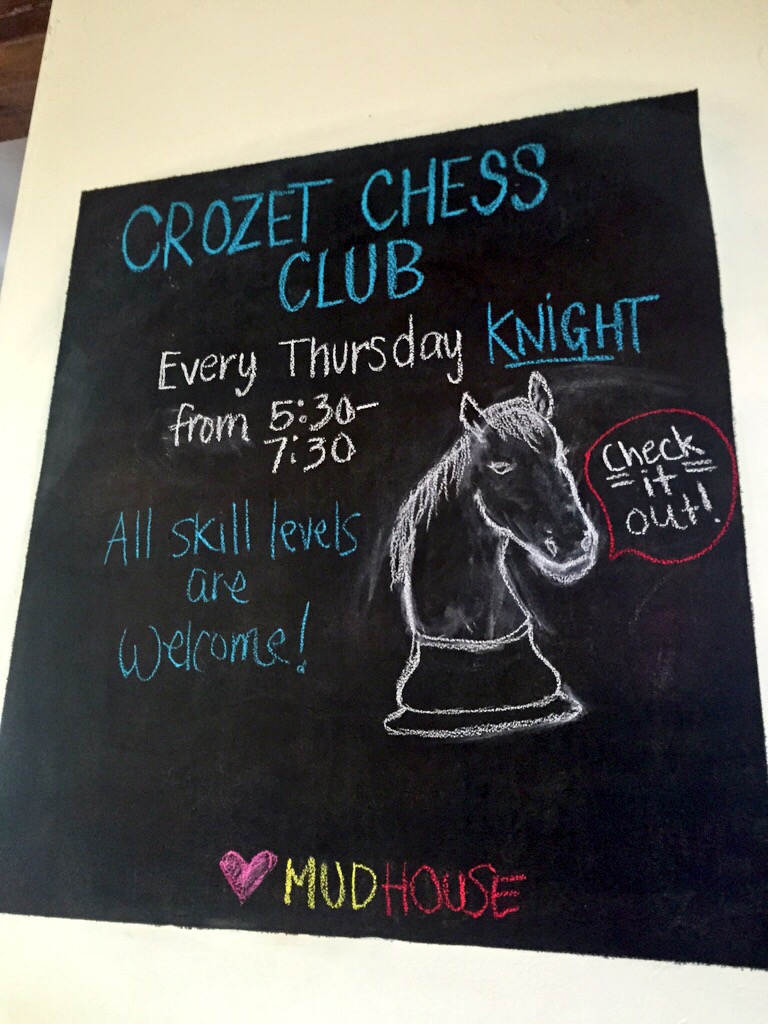 CROZET CHESS
CLUB
Every Thursday KNiGHT
from 5:30-
7:30
Check
it
out!
All skill levels
are
Welcome!
MUDHOUSE